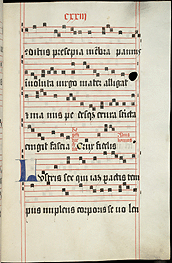 CXXIII
ditus presepia mēbra pannis
uoluta uirgo mater alligat
ma nus pe desq; crura stricta
cingit fascia Crux fidelis
Lustris sex qui iā pactis tem
pus implens corporis se uo len